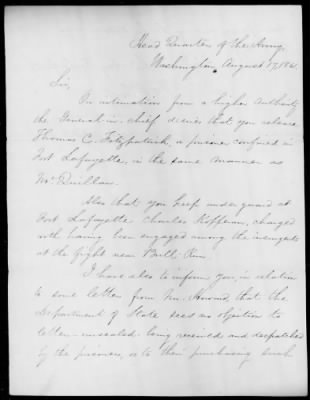 Head Quarters of the Army,
Washington, August 17, 1861.
Sir,
On intimation from a higher authority
the General-in-chief desires that you release
Thomas C. Fitzpatrick, a prisoner confined in
Fort Lafayette, in the same manner as
Mr. Quillan.
Also that you keep under guard at
Fort Lafayette Charles Kopperl, charged
with having been engaged among the insurgents
at the fight near Bull-Run.
I have also to inform you, in relation
to some letter from Mr. Howard, that the
Department of State sees no objection to
letters—unsealed—being received and despatched
by the prisoners, or to their purchasing such